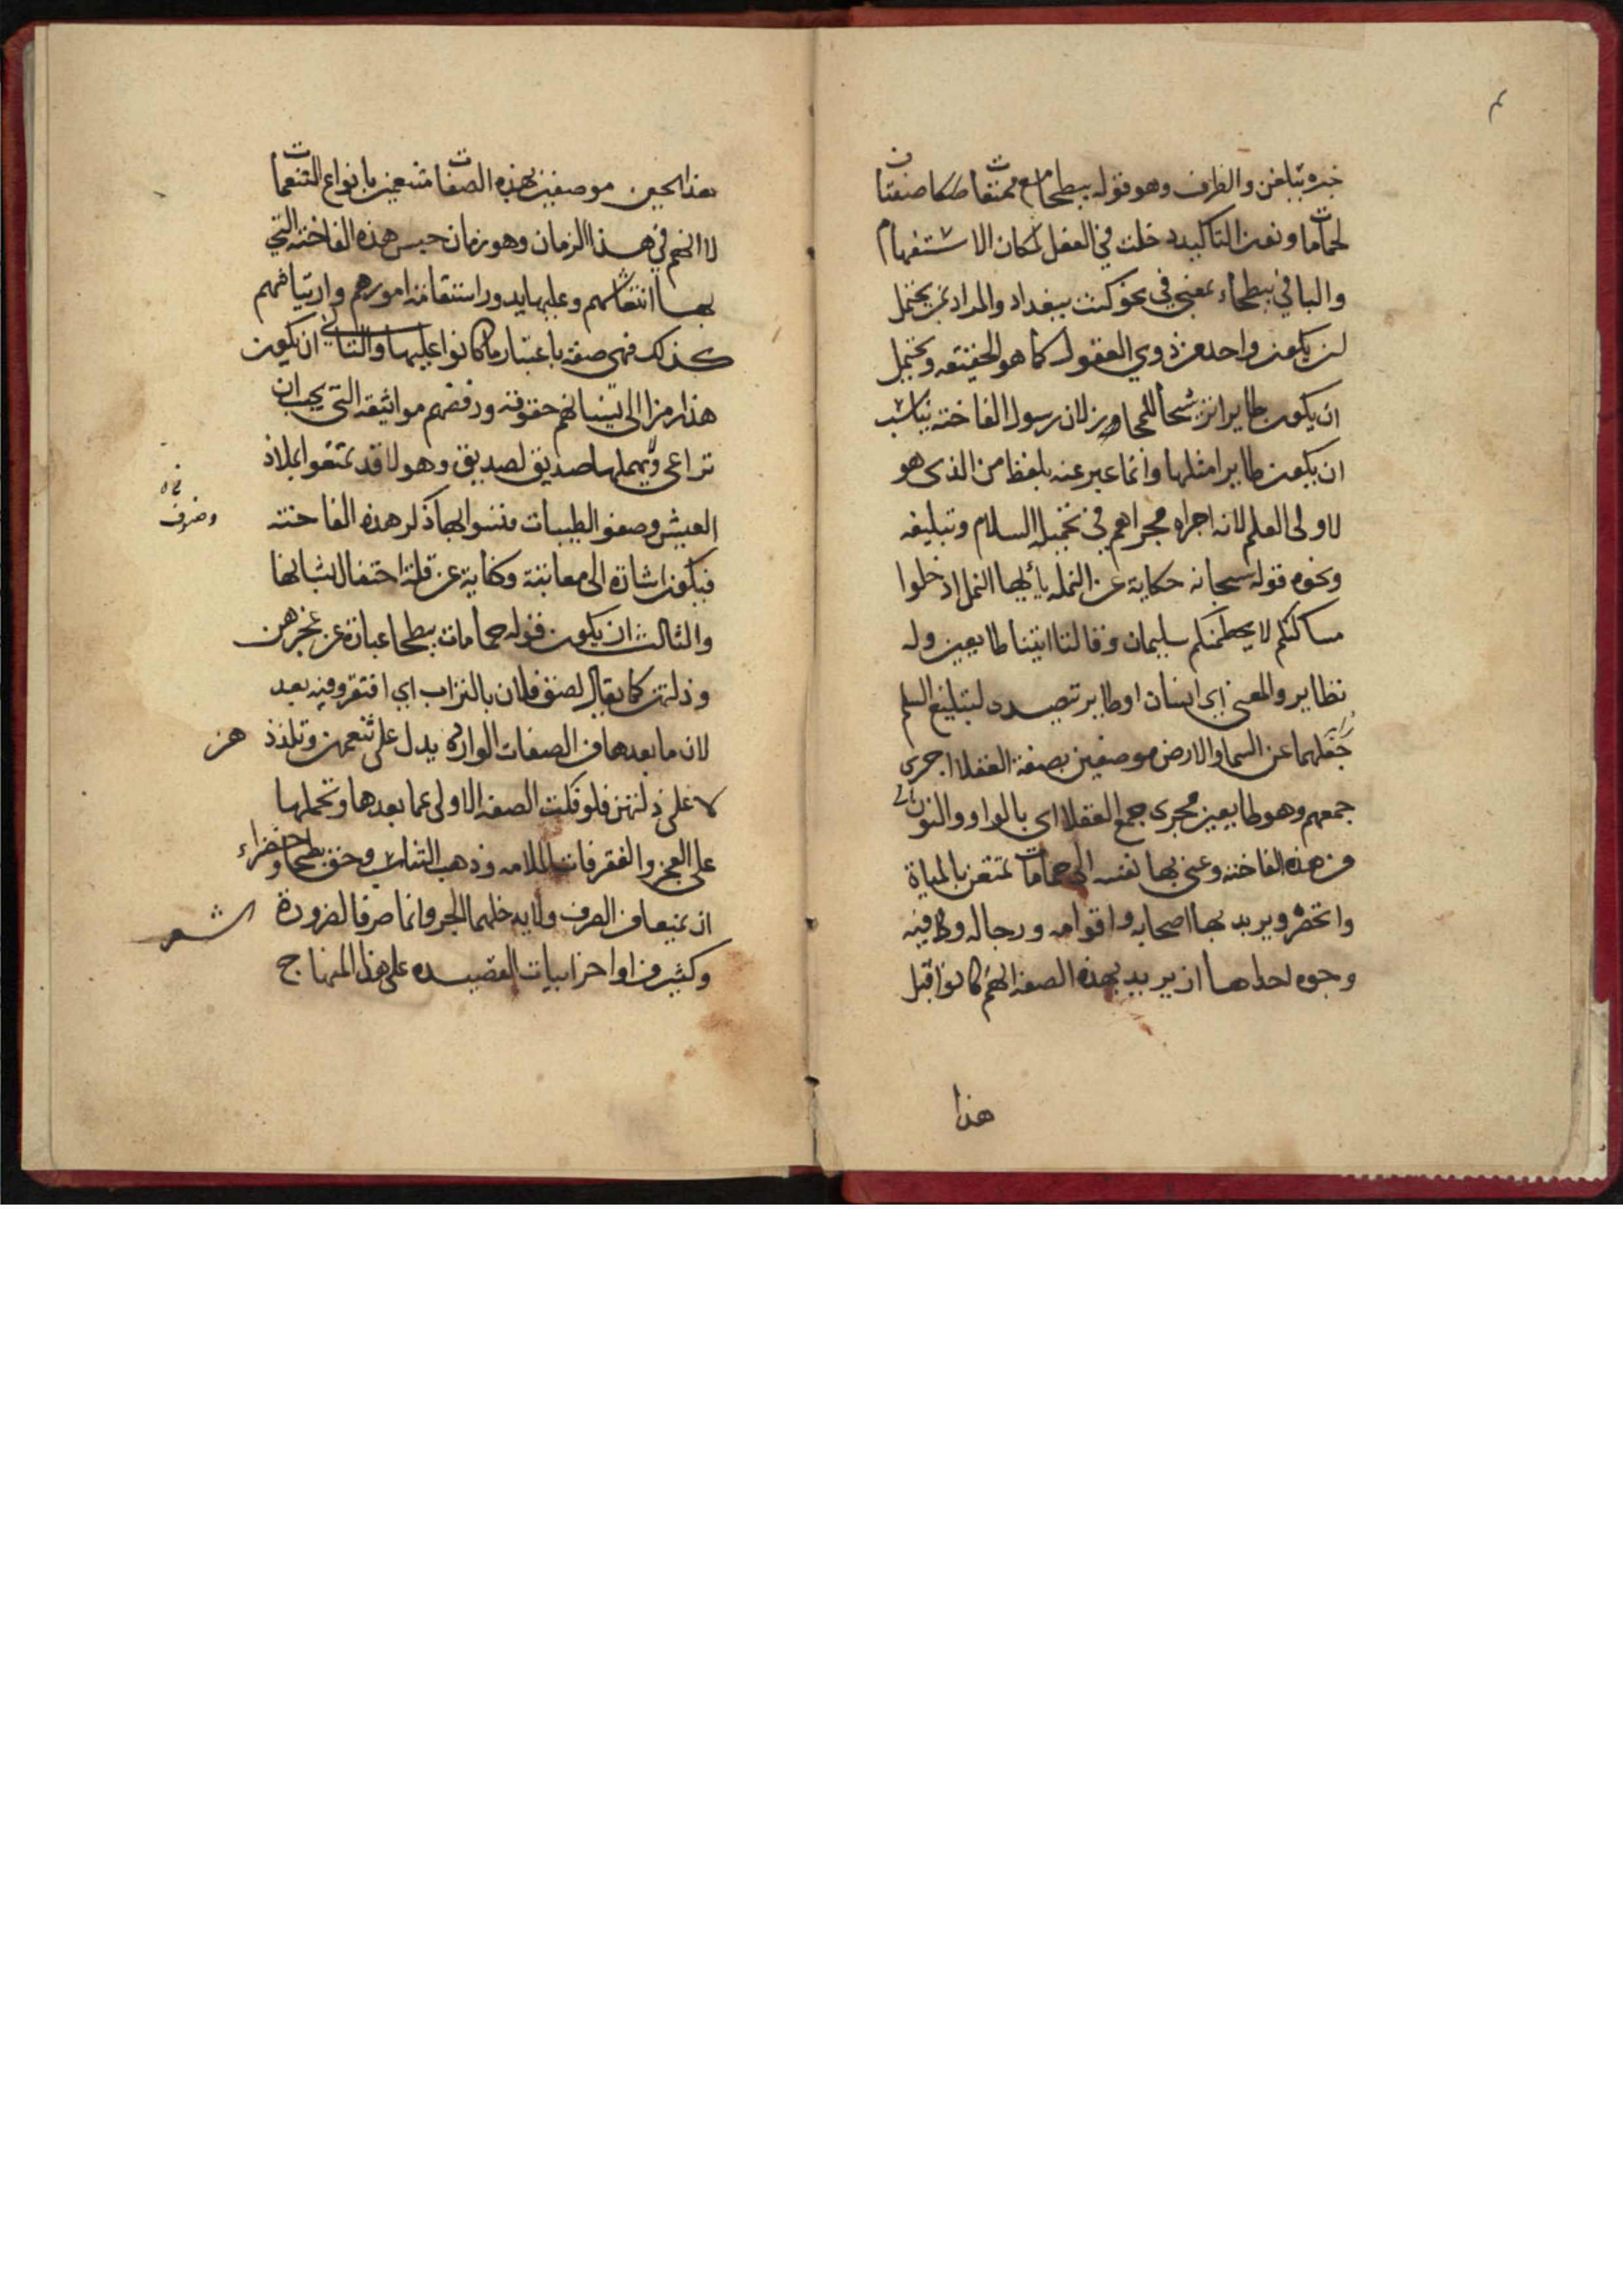 خبره تبلغن والظرف وهو قوله ببطحا مع ممتعات صفتان
لحمامات ونون التاكيد دخلت في الفعل لمكان الاستفهام
والبا في ببطحاء بمعنى في نحو كنت ببغداد والمراد بمن يحتمل
ان يكون واحد من ذوي العقول كما هو الحقيقه ويحتمل
ان يكون طايرا ترشحا للمجاز لان رسول الفاخته يناسب
ان يكون طايرا مثلها وانما عبر عنه بلفظ من الذى هو
لاولى العلم لانه اجراه مجراهم في تحميله السلام وتبليغه
ونحوه قوله سبحانه حكاية عن النمله يا ايها النمل ادخلوا
مساكنكم لا يحطمنكم سليمان وقالتا اتينا طايعين وله
نظاير والمعنى اي انسان او طاير تتصدى لتبليغ السلم
جعلهما عن السما والارض موصوفين بصفة العقلا اجرى
جمعهم وهو طايعين مجرى جمع العقلا اى بالواو والنون
من هذه الفاخته وعنى بها نفسه الى حمامات تمتعن بالمياة
والخضر ويريد بها اصحابه واقوامه ورجاله وفيه
وجوه احداها ان يريد بهذه الصفه انهم كانوا قبل
هذا
هذا الحين موصوفين بهذه الصفات متنعمين بانواع التنعمات
لا انهم في هذا الزمان وهو زمان حبس هذه الفاخته التي
بها انتعاشهم وعليها يدور استقامة امورهم وارتياشهم
كذلك فهى صفة باعتبار ما كانوا عليها والثاني ان يكون
هذا رمزا الى نسيانهم حقوقه ورفضهم مواثيقه التى يجب ان
تراعى ويهملها صديق لصديق وهولا قد تمتعوا بملاذ
العيش وصفو الطيبات فنسوا بها ذكر هذه الفاخته
فيكون اشارة الى معاتبة وكناية عن قلة احتفال بشانها
والثالث ان يكون قوله حمامات ببطحا عبارة عن عجزهن
وذلتهن كما يقال لصق فلان بالتراب اي افتقر وفيه بعد
لان ما بعدها من الصفات الوارده يدل على تنعمهن وتلذذهن
لا على ذلتهن فلو فكت الصفه الاولى عما بعدها وتحملها
على العجز والفقر فات الملامه وذهب التناسب وحق بطحا وخضراء
ان تمنعا من الصرف ولا يدخلهما الجر وانما صرفا لضرورة الشعر
وكثير من اواخر ابيات القصيده على هذا المنهاج